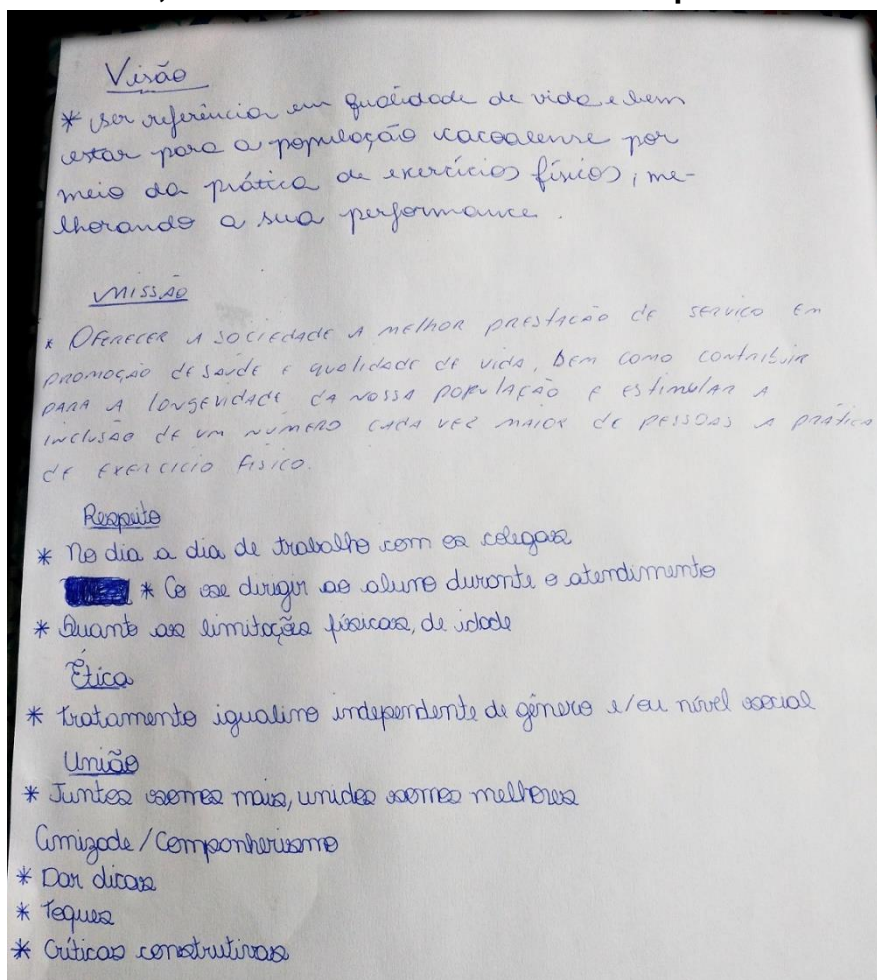 Visão
* ser referência em qualidade de vida e bem
estar para a população cacoalense por
meio da prática de exercícios físicos, me-
lhorando a sua performance.
MISSÃO
* OFERECER A SOCIEDADE A MELHOR PRESTAÇÃO DE SERVIÇO EM
PROMOÇÃO DE SAÚDE E QUALIDADE DE VIDA, BEM COMO CONTRIBUIR
PARA A LONGEVIDADE DA NOSSA POPULAÇÃO E ESTIMULAR A
INCLUSÃO DE UM NUMERO CADA VEZ MAIOR DE PESSOAS A PRÁTICA
DE EXERCICIO FISICO.
Respeito
* No dia a dia de trabalho com os colegas
* Ao se dirigir ao aluno durante o atendimento
* Quanto as limitações físicas, de idade
Ética
* tratamento igualino independente de gênero e/ou nível social
União
* Juntos somos mais, unidos somos melhores
Amizade/Companherismo
* Dar dicas
* Toques
* Críticas construtivas